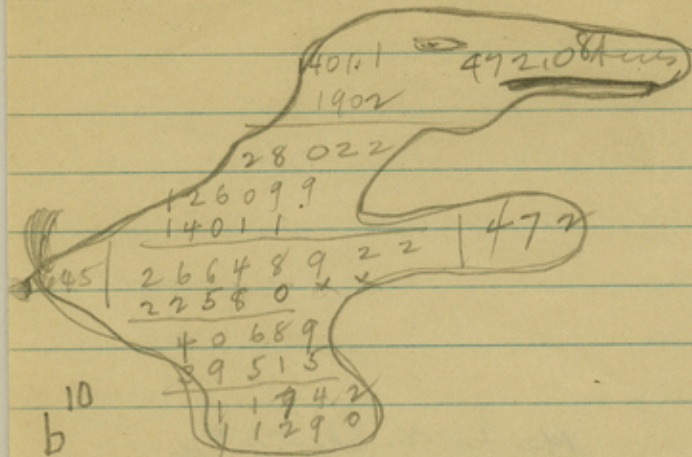 1401.1 472.08 Acres
1902
28022
126099
14011
5645 | 26648922 | 472
22580 x x
40689
39515
11742
11290
10
b